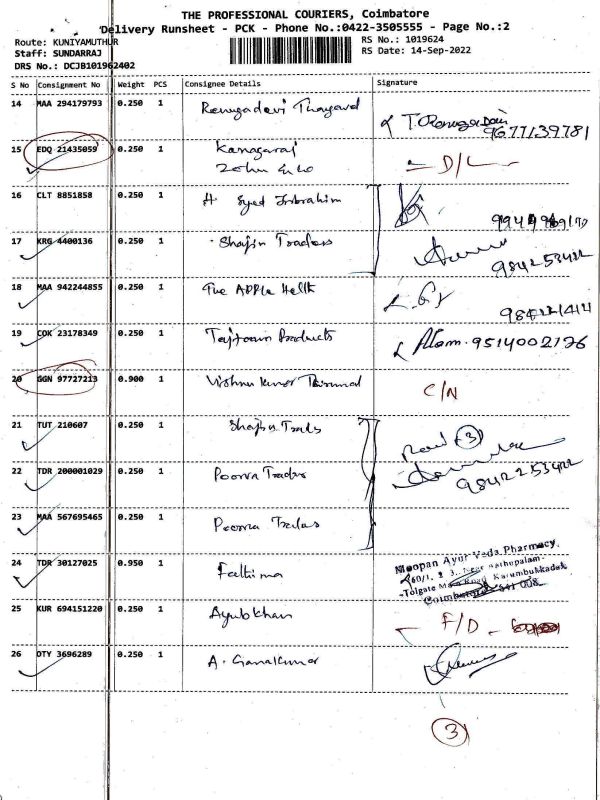 THE PROFESSIONAL COURIERS, Coimbatore
Delivery Runsheet - PCK - Phone No.:0422-3505555 - Page No.:2
Route: KUNIYAMUTHUR
Staff: SUNDARRAJ
DRS No.: DCJB101962402
RS No.: 1019624
RS Date: 14-Sep-2022
S No Consignment No Weight PCS Consignee Details Signature
14 MAA 294179793 0.250 1
9677139781
15 EDQ 21435059 0.250 1 Kanagaraj
D/L
16 CLT 8851858 0.250 1 H Syed Inbrahim
17 KRG 4400136 0.250 1 Shajin Traders
9842253422
18 MAA 942244855 0.250 1 The APPle Helth
19 COK 23178349 0.250 1 Products
Alam. 9514002176
20 GGN 97727213 0.900 1 Vishnu Kumar
C/N
21 TUT 210607 0.250 1
3
22 TDR 200001029 0.250 1 Poorva Trades
9842253422
23 MAA 567695465 0.250 1 Poorva
24 TDR 30127025 0.950 1 Fathima
Moopan Ayur Veda Pharmacy,
Coimbatore - 641 008.
25 KUR 694151220 0.250 1 Ayubkhan
F/D
26 DTY 3696289 0.250 1 A. Ganakumar
3